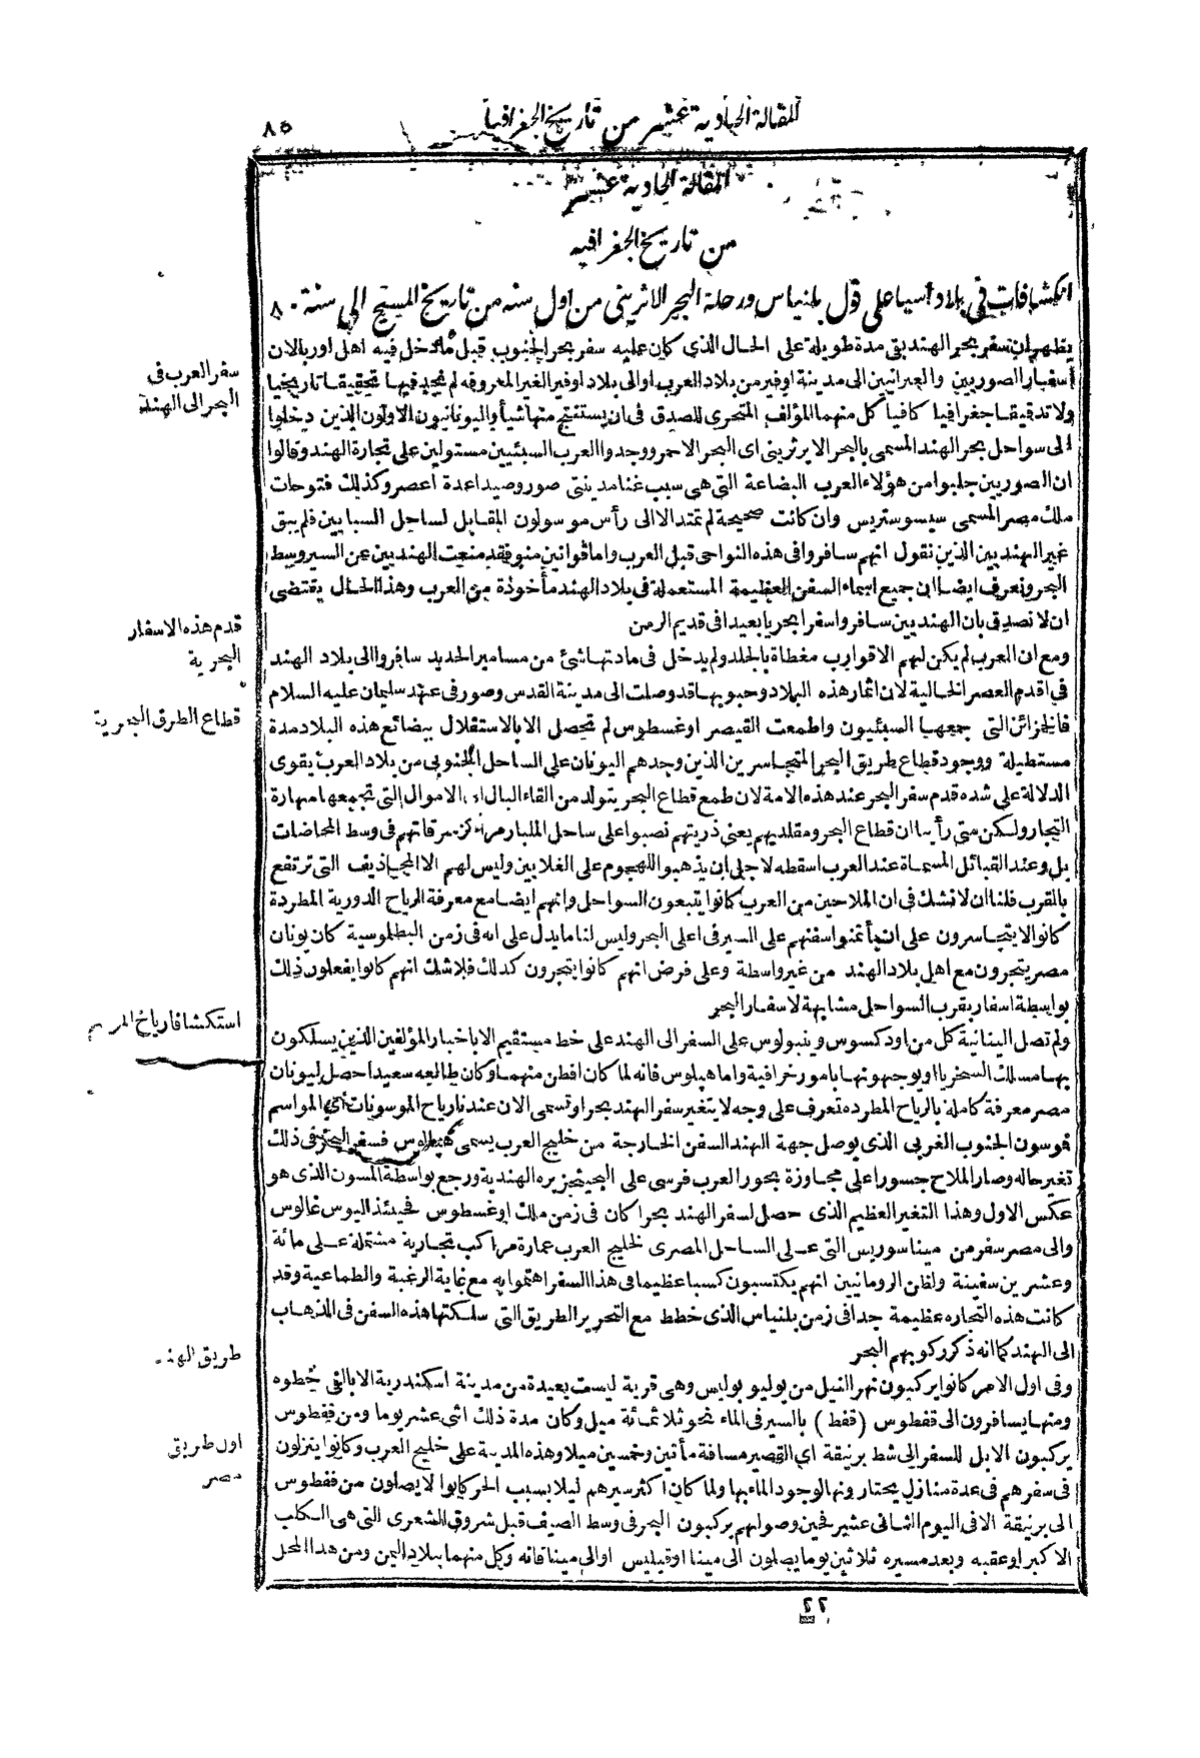 المقالة الحادية عشر من تاريخ الجغرافيا
٨٥
المقالة الحادية عشر
من تاريخ الجغرافيه
انكشافات في بلاد اسيا على قول بلنياس ورحلة البحر الاثريني من اول سنه من تاريخ المسيح الى سنة ٨٠
يظهر ان سفر بحر الهند بقى مدة طويلة على الحال الذى كان عليه سفر بحر الجنوب قبل ما دخل فيه اهل اوربا لان
أسفار الصوريين والعبرانيين الى مدينة اوفير من بلاد العرب او الى بلاد اوفير الغير المعروفه لم نجد فيها تحقيقا تاريخيا
ولا تدقيقا جغرافيا كافيا كل منهما المؤلف المتحرى للصدق فى ان يستنتج منها شيأ واليونانيون الاولون الذين دخلوا
الى سواحل بحر الهند المسمى بالبحر الايرثرينى اى البحر الاحمر ووجدوا العرب السبئيين مستولين على تجارة الهند وقالوا
ان الصوريين جلبوا من هؤلاء العرب البضاعة التى هى سبب غنا مدينتى صور وصيدا عدة اعصر وكذلك فتوحات
ملك مصر المسمى سيسوستريس وان كانت صحيحة لم تمتد الا الى رأس موسولون المقابل لساحل السبايين فلم يبق
غير الهنديين الذين نقول انهم سافروا فى هذه النواحى قبل العرب واما قوانين منو فقد منعت الهنديين عن السير وسط
البحر ونعرف ايضا ان جميع اسماء السفن العظيمة المستعملة فى بلاد الهند مأخوذة من العرب وهذا الحال يقتضى
ان لا نصدق بان الهنديين سافروا سفرا بحريا بعيدا فى قديم الزمن
ومع ان العرب لم يكن لهم الا قوارب مغطاة بالجلد ولم يدخل فى مادتها شئ من مسامير الحديد سافروا الى بلاد الهند
فى اقدم العصر الخالية لان اثمار هذه البلاد وحبوبها قد وصلت الى مدينة القدس وصور فى عهد سليمان عليه السلام
فالجزائن التى جمعها السبئيون واطمعت القيصر اوغسطوس لم تحصل الا بالاستقلال ببضائع هذه البلاد مدة
مستطيلة ووجود قطاع طريق البحر المتجاسرين الذين وجدهم اليونان على الساحل الجنوبى من بلاد العرب يقوى
الدلالة على شده قدم سفر البحر عند هذه الامة لان طمع قطاع البحر يتولد من القاء البال الى الاموال التى تجمعها مهارة
التجار ولكن متى رأينا ان قطاع البحر ومقلديهم يعنى ذريتهم نصبوا على ساحل المليبار مراكز سرقاتهم فى وسط المخاضات
بل وعند القبائل المسماة عند العرب اسقطه لاجل ان يذهبوا للهجوم على الغلايين وليس لهم الا المجاذيف التى ترتفع
بالقرب فلنا ان لا نشك فى ان الملاحين من العرب كانوا يتبعون السواحل وانهم ايضا مع معرفة الرياح الدورية المطردة
كانوا لا يتجاسرون على ان يأتمنوا سفنهم على السير فى اعلى البحر وليس لنا ما يدل على انه فى زمن البطلموسية كان يونان
مصر يتجرون مع اهل بلاد الهند من غير واسطة وعلى فرض انهم كانوا يتجرون كذلك فلا شك انهم كانوا يفعلون ذلك
بواسطة اسفار بقرب السواحل مشابهة لاسفار البحر
ولم تصل الينا نية كل من اودكسوس وينبولوس على السفر الى الهند على خط مستقيم الا باخبار المؤلفين الذين يسلكون
بها مسلك السخريا او يوجهونها بامور خرافية واما هيلوس فانه لما كان افطن منهما وكان طالعه سعيدا حصل ليونان
مصر معرفة كاملة بالرياح المطرده تعرف على وجه لا يتغير سفر الهند بحرا وتسمى الان عندنا رياح الموسونات اى المواسم
فموسون الجنوب الغربى الذى يوصل جهة الهند السفن الخارجة من خليج العرب يسمى هيبالوس فسفر البحر فى ذلك
تغير حاله وصار الملاح جسورا على مجاوزة بحور العرب فرسى على البحيثجزيره الهندية ورجع بواسطة المسون الذى هو
عكس الاول وهذا التغير العظيم الذى حصل لسفر الهند بحرا كان فى زمن ملك اوغسطوس فحينئذ اليوس غالوس
والى مصر سفر من مينا سوريس التى على الساحل المصرى لخليج العرب عمارة مراكب تجارية مشتملة على مائة
وعشرين سفينة ولظن الرومانيين انهم يكتسبون كسبا عظيما فى هذا السفر اهتموا به مع نهاية الرغبة والطماعية وقد
كانت هذه التجاره عظيمة جدا فى زمن بلنياس الذى خطط مع التحرير الطريق التى سلكتها هذه السفن فى الذهاب
الى الهند كما انه ذكر ركوبهم البحر
وفى اول الامر كانوا يركبون نهر النيل من يوليو بوليس وهى قرية ليست بعيدة من مدينة اسكندرية الا بالفى خطوه
ومنها يسافرون الى قفطوس (قفط) بالسير فى الماء نحو ثلاثمائة ميل وكان مدة ذلك اثنى عشر يوما ومن قفطوس
يركبون الابل للسفر الى شط برنيقة اى القصير مسافة مأتين وخمسين ميلا وهذه المدينة على خليج العرب وكانوا ينزلون
فى سفرهم فى عدة منازل يختارونها لوجود الماء بها ولما كان اكثر سيرهم ليلا بسبب الحر كانوا لا يصلون من قفطوس
الى برنيقة الا فى اليوم الثانى عشر فحين وصولهم يركبون البحر فى وسط الصيف قبل شروق الشعرى التى هى الكلب
الاكبر او عقبه وبعد مسيره ثلاثين يوما يصلون الى مينا اوقيليس او الى مينا قانه وكل منهما ببلاد اليمن ومن هذا المحل
سفر العرب فى
البحر الى الهند
قدم هذه الاسفار
البحرية
قطاع الطرق البحرية
استكشاف ارياح المو
طريق الهند
اول طريق
مصر
٢٢